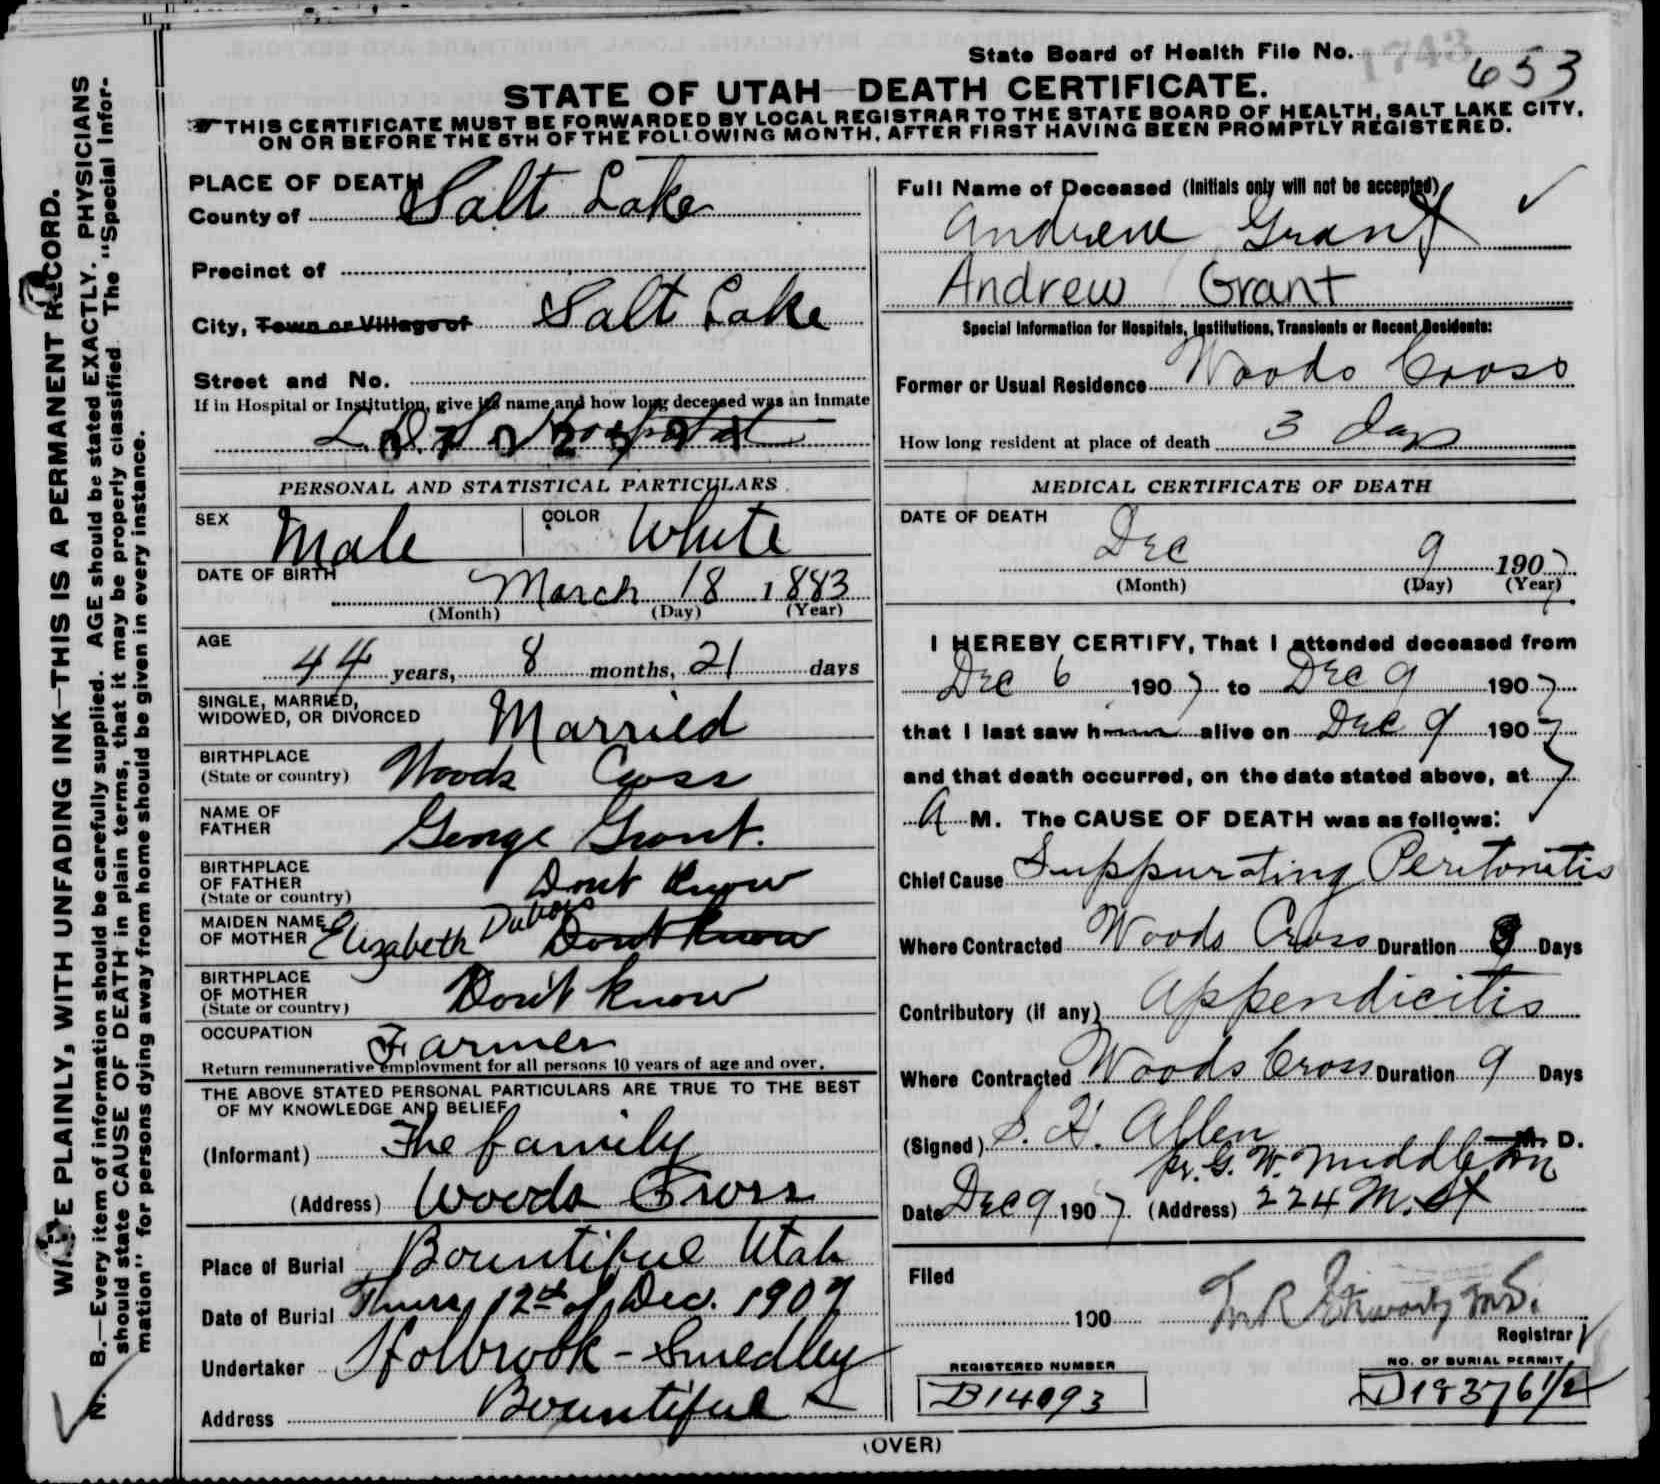 State Board of Health File No. 1743 653
STATE OF UTAH—DEATH CERTIFICATE.
THIS CERTIFICATE MUST BE FORWARDED BY LOCAL REGISTRAR TO THE STATE BOARD OF HEALTH, SALT LAKE CITY,
ON OR BEFORE THE 5TH OF THE FOLLOWING MONTH, AFTER FIRST HAVING BEEN PROMPTLY REGISTERED.
PLACE OF DEATH
County of Salt Lake
Precinct of
City, Town or Village of Salt Lake
Street and No.
If in Hospital or Institution, give its name and how long deceased was an Inmate
L. D. S. Hospital
PERSONAL AND STATISTICAL PARTICULARS
SEX Male COLOR White
DATE OF BIRTH March 18 1883
(Month) (Day) (Year)
AGE
44 years, 8 months, 21 days
SINGLE, MARRIED,
WIDOWED, OR DIVORCED Married
BIRTHPLACE
(State or country) Woods Cross
NAME OF
FATHER George Grant.
BIRTHPLACE
OF FATHER
(State or country) Dont Know
MAIDEN NAME
OF MOTHER Elizabeth Dubois Dont Know
BIRTHPLACE
OF MOTHER
(State or country) Don't Know
OCCUPATION Farmer
Return remunerative employment for all persons 10 years of age and over.
THE ABOVE STATED PERSONAL PARTICULARS ARE TRUE TO THE BEST
OF MY KNOWLEDGE AND BELIEF
(Informant) The family
(Address) Woods Cross
Place of Burial Bountiful Utah
Date of Burial Thurs 12th of Dec. 1907
Undertaker Holbrook - Smedley
Address Bountiful
Full Name of Deceased (Initials only will not be accepted)
Andrew Grant
Andrew Grant
Special Information for Hospitals, Institutions, Transients or Recent Residents:
Former or Usual Residence Woods Cross
How long resident at place of death 3 days
MEDICAL CERTIFICATE OF DEATH
DATE OF DEATH
Dec 9 1907
(Month) (Day) (Year)
I HEREBY CERTIFY, That I attended deceased from
Dec 6 1907 to Dec 9 1907
that I last saw him alive on Dec 9 1907
and that death occurred, on the date stated above, at 7
A M. The CAUSE OF DEATH was as follows:
Chief Cause Suppurating Peritonitis
Where Contracted Woods Cross Duration 8 Days
Contributory (if any) Appendicitis
Where Contracted Woods Cross Duration 9 Days
(Signed) S. H. Allen M. D.
pr. G. W. Middleton
Date Dec 9 1907. (Address) 224 M. St
Filed
190
Registrar
REGISTERED NUMBER
B14093
NO. OF BURIAL PERMIT
D18376 1/2
(OVER)
WRITE PLAINLY, WITH UNFADING INK—THIS IS A PERMANENT RECORD.
N. B.—Every item of information should be carefully supplied. AGE should be stated EXACTLY. PHYSICIANS
should state CAUSE OF DEATH in plain terms, that it may be properly classified. The "Special Infor-
mation" for persons dying away from home should be given in every instance.